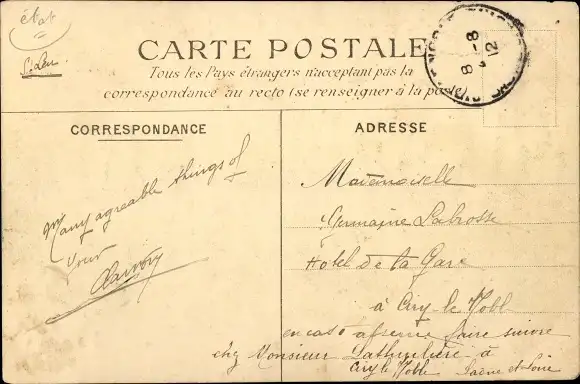 état
St Leu
CARTE POSTALE
Tous les Pays étrangers n'acceptent pas la
correspondance au recto (se renseigner à la poste)
8 - 8
12
CORRESPONDANCE
Many agreable things of
your
ADRESSE
Mademoiselle
Germaine Labrosse
Hotel de la Gare
à Ciry le Noble
en cas d'absence faire suivre
chez Monsieur Lathuilière à
Ciry le Noble Saône et Loire